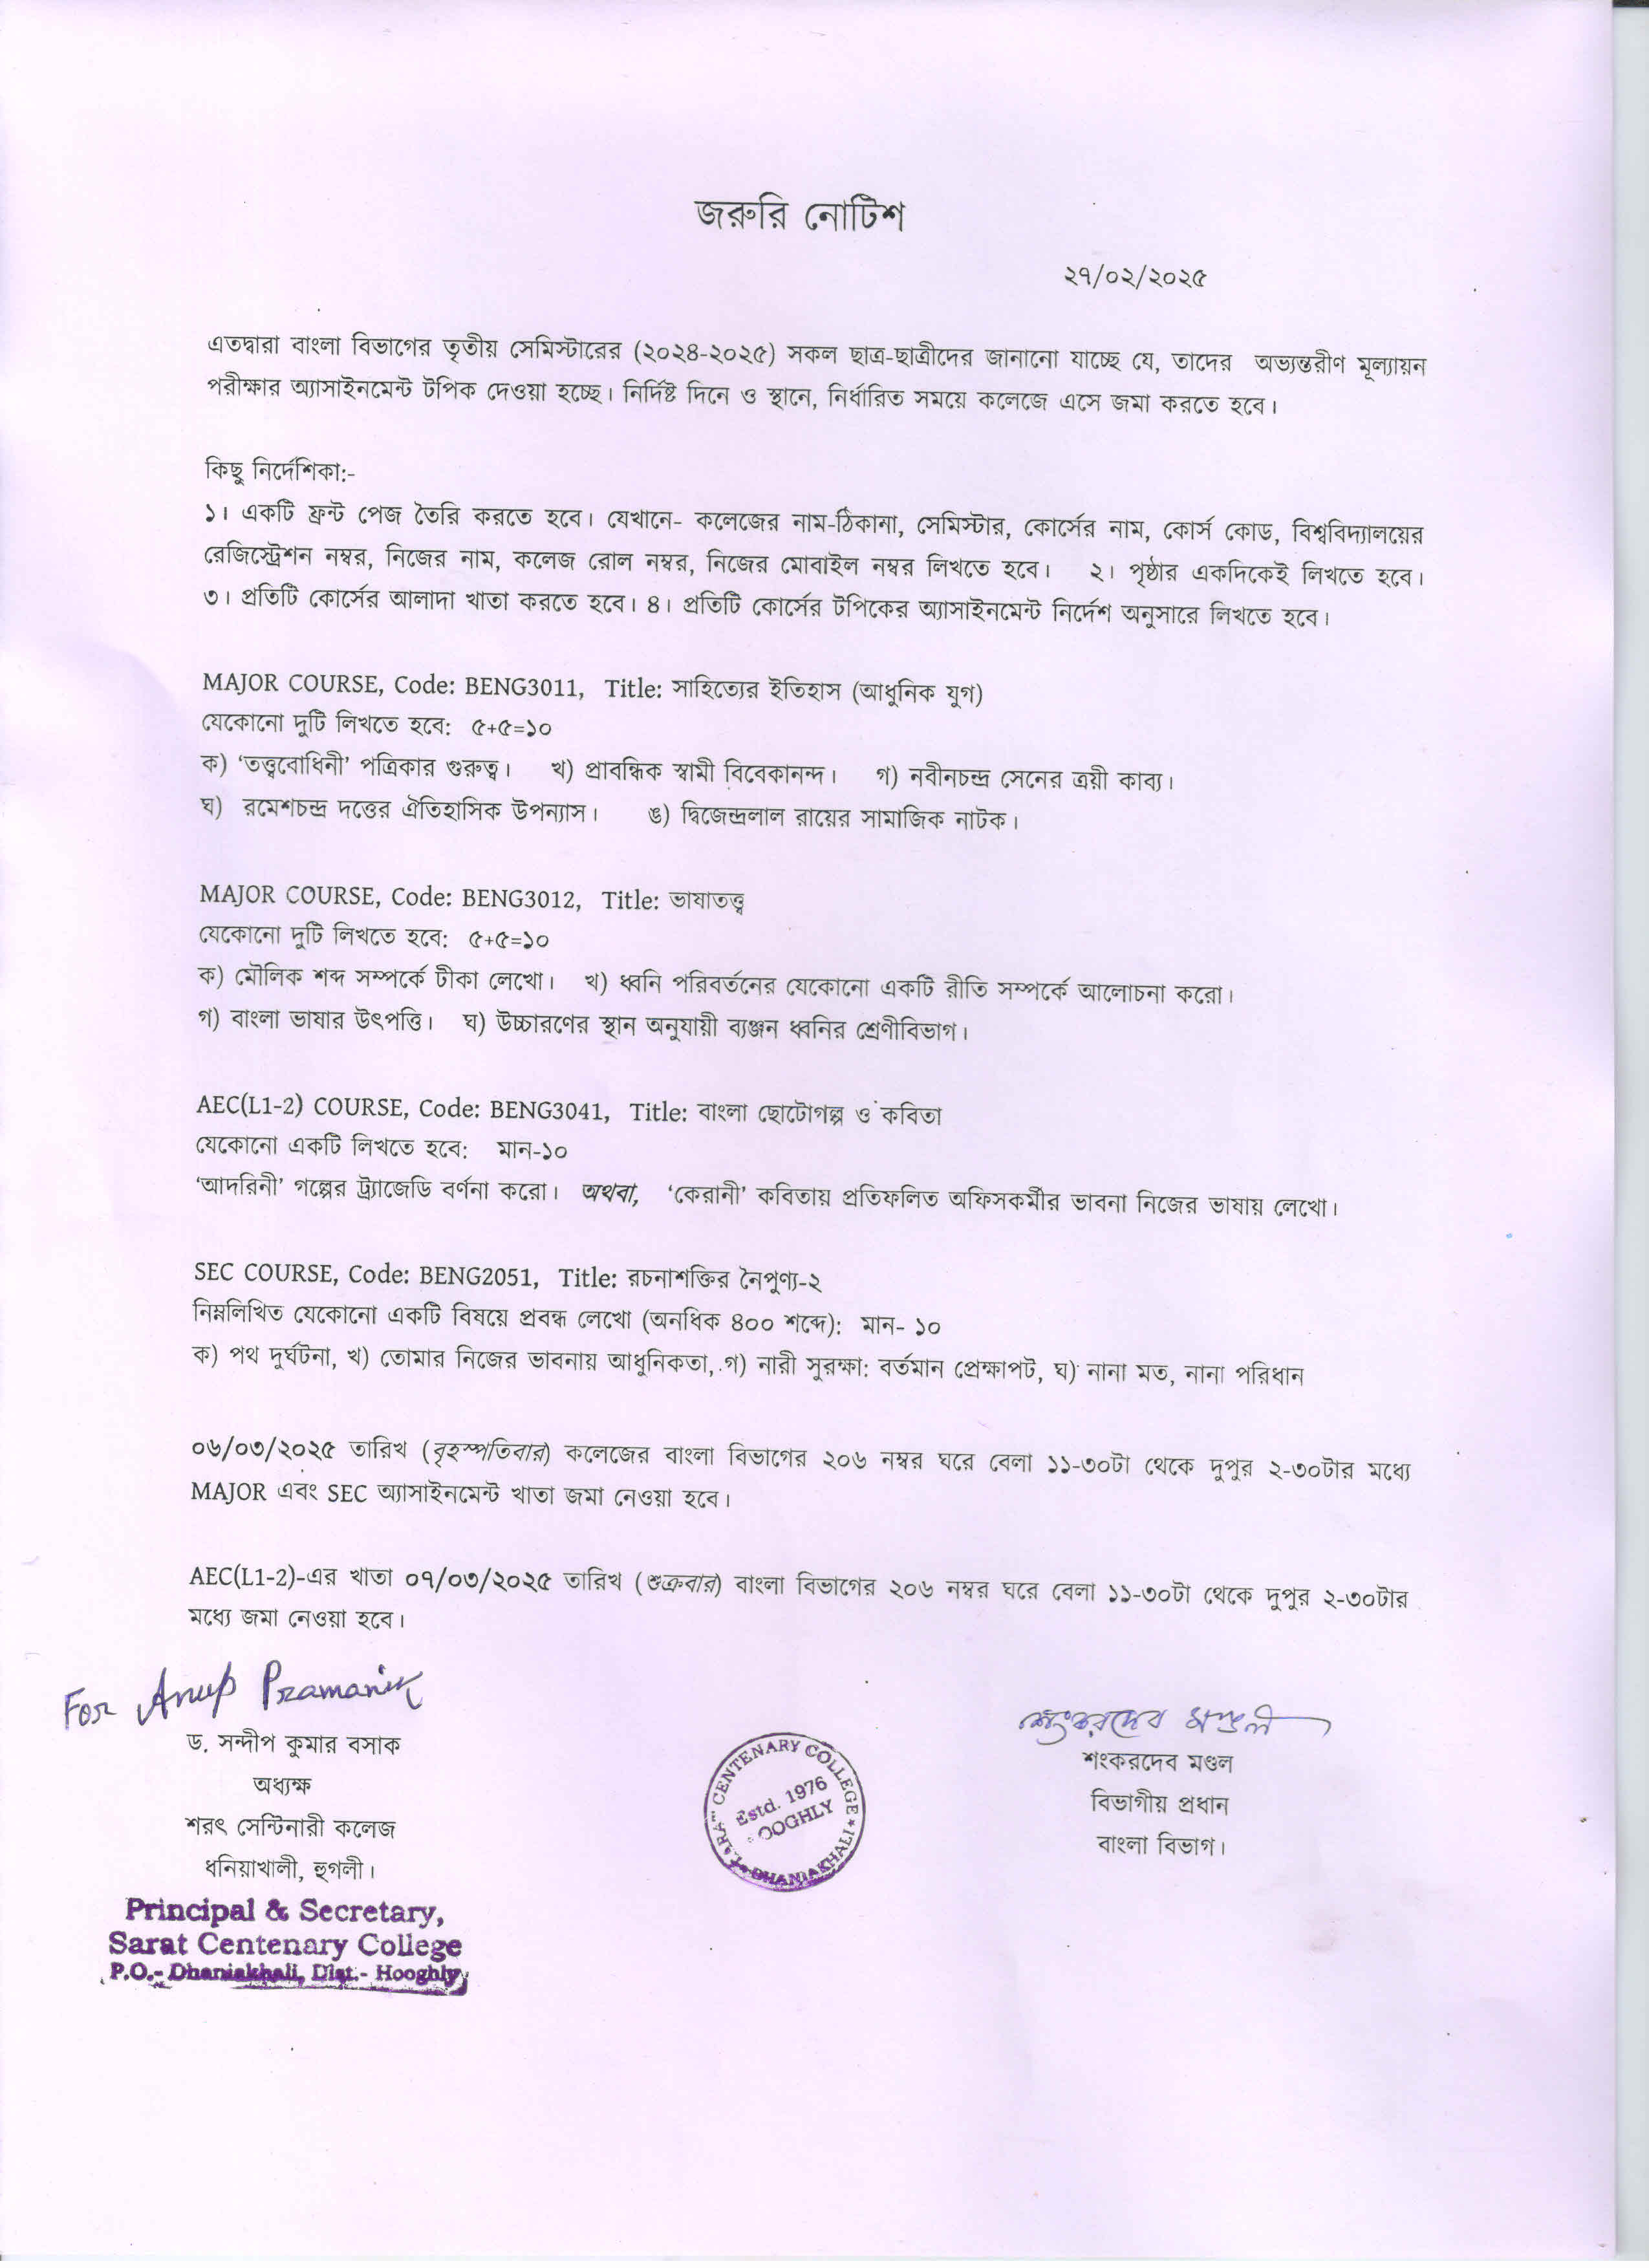 জরুরি নোটিশ
২৭/০২/২০২৫
এতদ্বারা বাংলা বিভাগের তৃতীয় সেমিস্টারের (২০২৪-২০২৫) সকল ছাত্র-ছাত্রীদের জানানো যাচ্ছে যে, তাদের অভ্যন্তরীণ মূল্যায়ন
পরীক্ষার অ্যাসাইনমেন্ট টপিক দেওয়া হচ্ছে। নির্দিষ্ট দিনে ও স্থানে, নির্ধারিত সময়ে কলেজে এসে জমা করতে হবে।
কিছু নির্দেশিকা:-
১। একটি ফ্রন্ট পেজ তৈরি করতে হবে। যেখানে- কলেজের নাম-ঠিকানা, সেমিস্টার, কোর্সের নাম, কোর্স কোড, বিশ্ববিদ্যালয়ের
রেজিস্ট্রেশন নম্বর, নিজের নাম, কলেজ রোল নম্বর, নিজের মোবাইল নম্বর লিখতে হবে। ২। পৃষ্ঠার একদিকেই লিখতে হবে।
৩। প্রতিটি কোর্সের আলাদা খাতা করতে হবে। ৪। প্রতিটি কোর্সের টপিকের অ্যাসাইনমেন্ট নির্দেশ অনুসারে লিখতে হবে।
MAJOR COURSE, Code: BENG3011, Title: সাহিত্যের ইতিহাস (আধুনিক যুগ)
যেকোনো দুটি লিখতে হবে: ৫+৫=১০
ক) ‘তত্ত্ববোধিনী’ পত্রিকার গুরুত্ব। খ) প্রাবন্ধিক স্বামী বিবেকানন্দ। গ) নবীনচন্দ্র সেনের ত্রয়ী কাব্য।
ঘ) রমেশচন্দ্র দত্তের ঐতিহাসিক উপন্যাস। ঙ) দ্বিজেন্দ্রলাল রায়ের সামাজিক নাটক।
MAJOR COURSE, Code: BENG3012, Title: ভাষাতত্ত্ব
যেকোনো দুটি লিখতে হবে: ৫+৫=১০
ক) মৌলিক শব্দ সম্পর্কে টীকা লেখো। খ) ধ্বনি পরিবর্তনের যেকোনো একটি রীতি সম্পর্কে আলোচনা করো।
গ) বাংলা ভাষার উৎপত্তি। ঘ) উচ্চারণের স্থান অনুযায়ী ব্যঞ্জন ধ্বনির শ্রেণীবিভাগ।
AEC(L1-2) COURSE, Code: BENG3041, Title: বাংলা ছোটোগল্প ও কবিতা
যেকোনো একটি লিখতে হবে: মান-১০
‘আদরিনী’ গল্পের ট্র্যাজেডি বর্ণনা করো। অথবা, ‘কেরানী’ কবিতায় প্রতিফলিত অফিসকর্মীর ভাবনা নিজের ভাষায় লেখো।
SEC COURSE, Code: BENG2051, Title: রচনাশক্তির নৈপুণ্য-২
নিম্নলিখিত যেকোনো একটি বিষয়ে প্রবন্ধ লেখো (অনধিক ৪০০ শব্দে): মান- ১০
ক) পথ দুর্ঘটনা, খ) তোমার নিজের ভাবনায় আধুনিকতা, গ) নারী সুরক্ষা: বর্তমান প্রেক্ষাপট, ঘ) নানা মত, নানা পরিধান
০৬/০৩/২০২৫ তারিখ (বৃহস্পতিবার) কলেজের বাংলা বিভাগের ২০৬ নম্বর ঘরে বেলা ১১-৩০টা থেকে দুপুর ২-৩০টার মধ্যে
MAJOR এবং SEC অ্যাসাইনমেন্ট খাতা জমা নেওয়া হবে।
AEC(L1-2)-এর খাতা ০৭/০৩/২০২৫ তারিখ (শুক্রবার) বাংলা বিভাগের ২০৬ নম্বর ঘরে বেলা ১১-৩০টা থেকে দুপুর ২-৩০টার
মধ্যে জমা নেওয়া হবে।
For Anup Pramanik
ড. সন্দীপ কুমার বসাক
অধ্যক্ষ
শরৎ সেন্টিনারী কলেজ
ধনিয়াখালী, হুগলী।
Principal & Secretary,
Sarat Centenary College
P.O.- Dhaniakhali, Dist.- Hooghly
CENTENARY COLLEGE * DHANIAKHALI
Estd. 1976
OOGHLY
শংকরদেব মণ্ডল
শংকরদেব মণ্ডল
বিভাগীয় প্রধান
বাংলা বিভাগ।